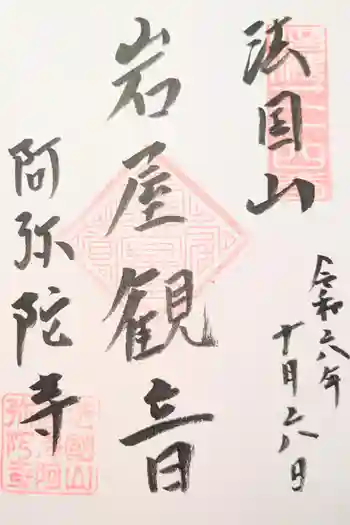 法国山
令和六年
十月六日
岩屋観音
阿弥陀寺